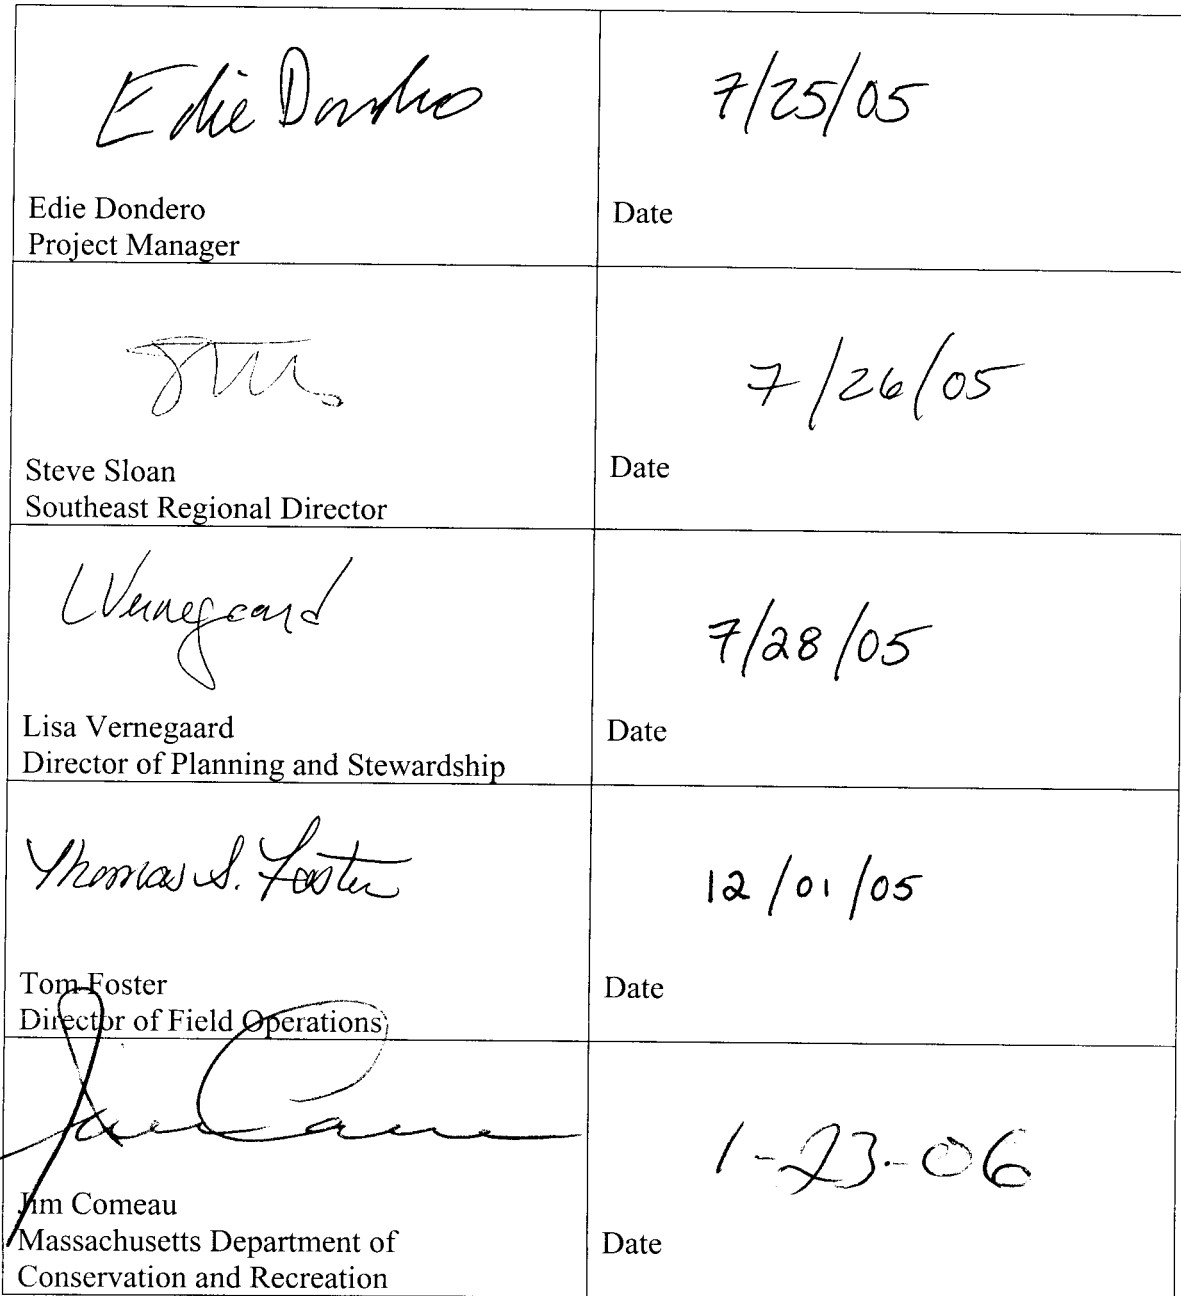 Edie Dondero
7/25/05
Edie Dondero
Project Manager
Date
7/26/05
Steve Sloan
Southeast Regional Director
Date
LVernegaard
7/28/05
Lisa Vernegaard
Director of Planning and Stewardship
Date
Thomas S. Foster
12/01/05
Tom Foster
Director of Field Operations
Date
1-23-06
Jim Comeau
Massachusetts Department of
Conservation and Recreation
Date